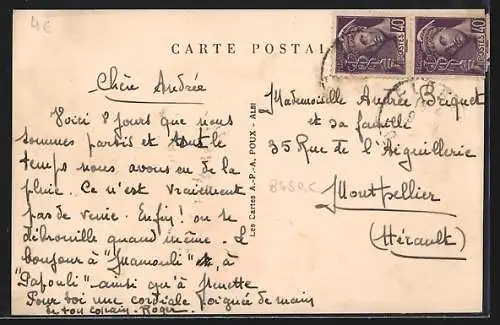 4€
CARTE POSTALE
40
POSTES
40
POSTES
Chère Andrée
Voici 8 jours que nous
sommes partis et tout le
temps nous avons eu de la
pluie. Ce n'est vraiement
pas de venie. Enfin! on se
débrouille quand même. Le
bonjour à "Mamouli" à
"Papouli" ainsi qu'à
Pour toi une cordiale poignée de main
de ton copain. Roger
Les Cartes A.P.A. POUX - ALBI
Mademoiselle Andrée Briguet
et sa famille
35 Rue de l'Aiguillerie
Montpellier
(Hérault)